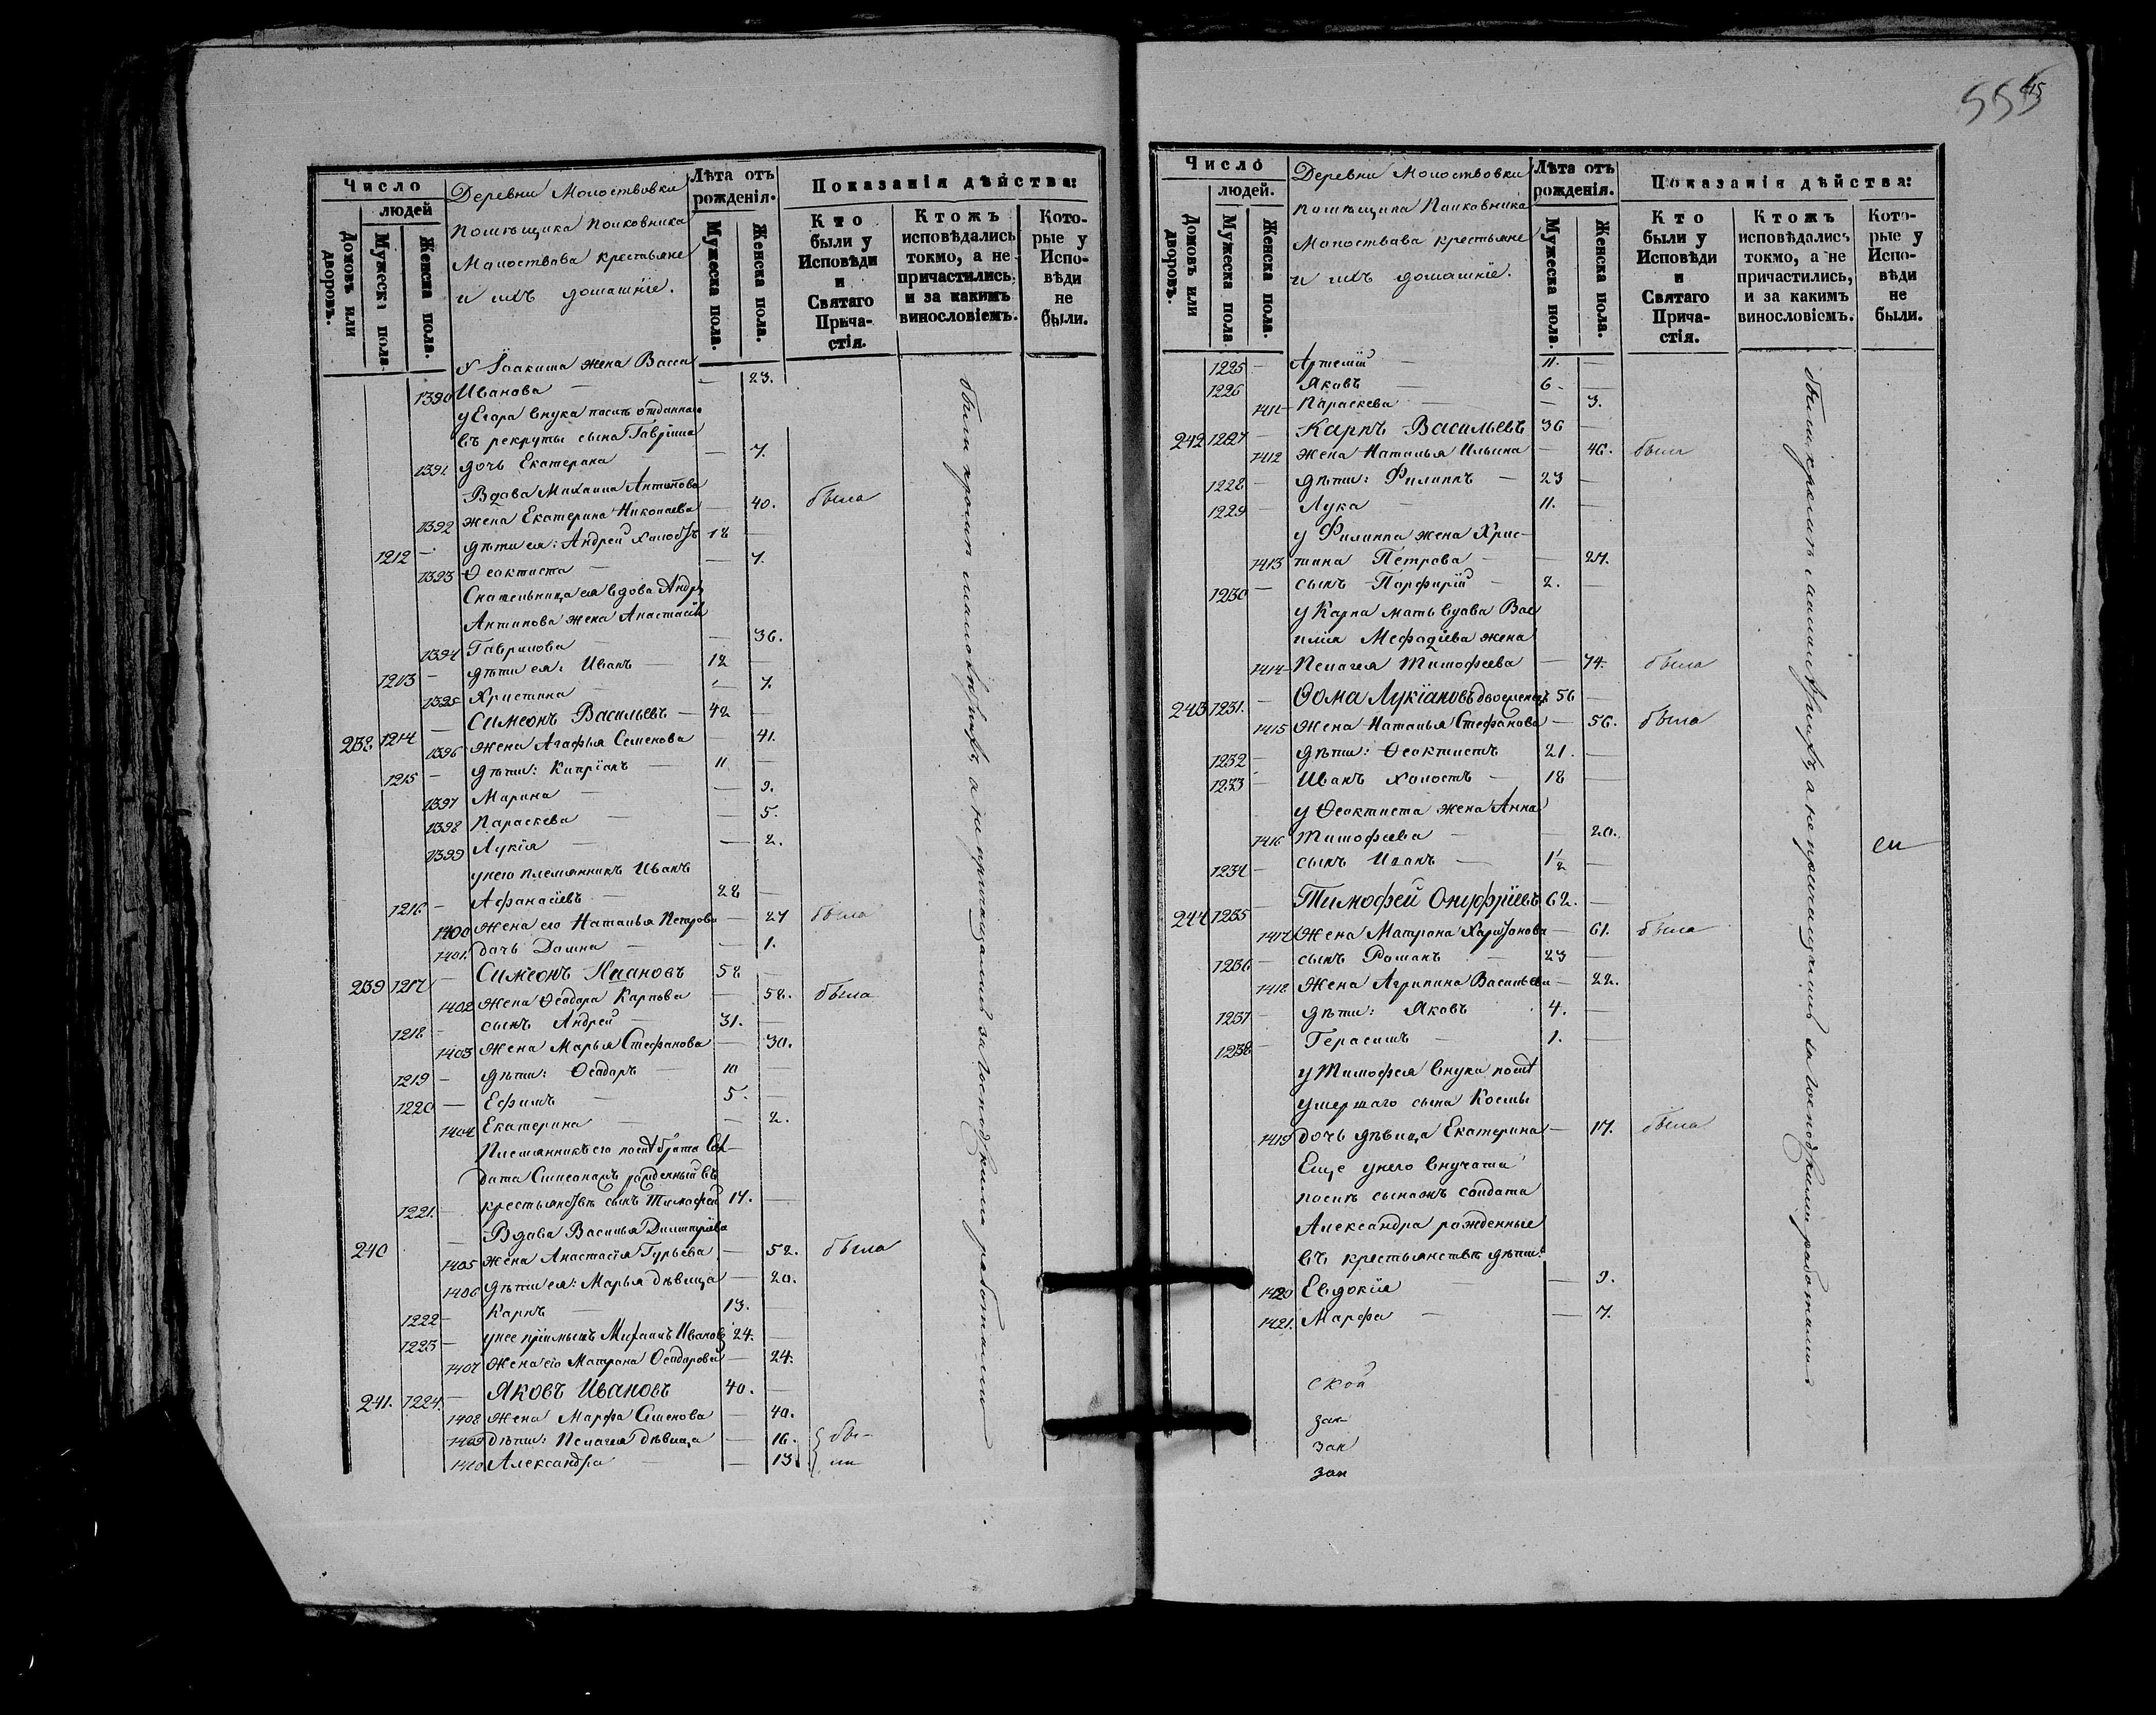 555
Число
людей
Домовъ или дворовъ.
Мужеска пола
Женска пола.
Деревни Молоствовки
помѣщика Полковника
Молоствова крестьяне
и ихъ домашніе.
Лѣта отъ рожденія.
Мужеска пола.
Женска пола.
Показанія дѣйства:
Кто были у Исповѣди и Святаго Причастія.
Ктожъ исповѣдались токмо, а не причастились, и за какимъ винословіемъ.
Которые у Исповѣди не были.
у Іоакима жена Васса
1390 Иванова — — 23.
у Егора внука послѣ отданнаго
въ рекруты сына Гавріила
1391 дочь Екатерина — — 7.
Вдова Михаила Антипова
1392 жена Екатерина Николаева — 40. была
1212 — дѣти ея: Андрей холостъ 18 —
1393 Ѳеоктиста — — 7.
вдова Андрея
Антипова жена Анастасія
1394 Гаврилова — — 36.
1213 — дѣти ея: Иванъ — 12 —
1395 Христина — — 7.
238 1214 — Симеонъ Васильевъ — 42 —
1396 жена Агафья Семенова — 41.
1215 — дѣти: Кипріанъ — 11 —
1397 Марина — — 9.
1398 Параскева — — 5.
1399 Лукія — — 2.
у него племянникъ Иванъ
1216 — Афанасіевъ — 28 —
1400 жена его Наталья Петрова — 27 была
1401. дочь Домна — — 1.
239 1217 — Симеонъ Ивановъ 58 —
1402 жена Ѳеодора Карпова — 58. была
1218 — сынъ Андрей — 31. —
1403 жена Марья Стефанова — 30.
1219 — дѣти: Ѳеодоръ — 10 —
1220 — Ефимъ — 5. —
1404 Екатерина — — 2.
Племянникъ его послѣ брата Сол-
дата Симеона рожденный въ
1221. — крестьянствѣ сынъ Тимофей 17. —
240 — Вдова Василья Димитріева
1405 жена Анастасія Гурьева — 52. была
1406 дѣти ея: Марья дѣвица — 20.
1222 — Карпъ — 13. —
1223 — у нее пріемышъ Михаилъ Ивановъ 24. —
1407 жена его Матрона Ѳеодорова — 24.
241. 1224. — Яковъ Ивановъ 40. —
1408 жена Марфа Семенова — 40.
1409 дѣти: Пелагея дѣвица — 16. бы-
1410 Александра — — 13. ли
были кромѣ малолѣтнихъ а не причащались за господскими работами
Число
людей.
Домовъ или дворовъ.
Мужеска пола
Женска пола.
Деревни Молоствовки
помѣщика Полковника
Молоствова крестьяне
и ихъ домашніе.
Лѣта отъ рожденія.
Мужеска пола.
Женска пола.
Показанія дѣйства:
Кто были у Исповѣди и Святаго Причастія.
Ктожъ исповѣдались токмо, а не причастились, и за какимъ винословіемъ.
Которые у Исповѣди не были.
1225 — Артемій — 11. —
1226 Яковъ — 6. —
1411 — Параскева — — 3.
242 1227 — Карпъ Васильевъ 36 —
1412 жена Наталья Ильина — 46. была
1228 — дѣти: Филиппъ — 23 —
1229 — Лука — 11. —
у Филиппа жена Хрис-
1413 тина Петрова — — 27.
1230 — сынъ Порфирій — 2. —
у Карпа мать вдова Вас
илія Мефодіева жена
1414 — Пелагея Тимофеева — 74. была
243 1231. — Ѳома Лукіановъ двоеженецъ 56 —
1415 жена Наталья Стефанова — 56. была
1232 — дѣти: Ѳеоктистъ 21. —
1233 — Иванъ холостъ — 18 —
у Ѳеоктиста жена Анна
1416 Тимофеева — — 20.
1234 — сынъ Иванъ — 1½ —
244 1235 — Тимофей Онуфріевъ 62. —
1417 жена Матрона Харитонова — 61. была
1236 — сынъ Романъ — 23 —
1418 жена Агрипина Васильева — 22.
1237 — дѣти: Яковъ 4. —
1238 — Герасимъ — 1. —
у Тимофея внука послѣ
умершаго сына Косьмы
1419 дочь дѣвица Екатерина — 17. была
Еще у него внучата
послѣ сына солдата
Александра рожденные
въ крестьянствѣ дѣти:
1420 Евдокія — — 9.
1421. Марфа — — 7.
были кромѣ малолѣтнихъ а не причащались за господскими работами
ской
зак
зак
зак